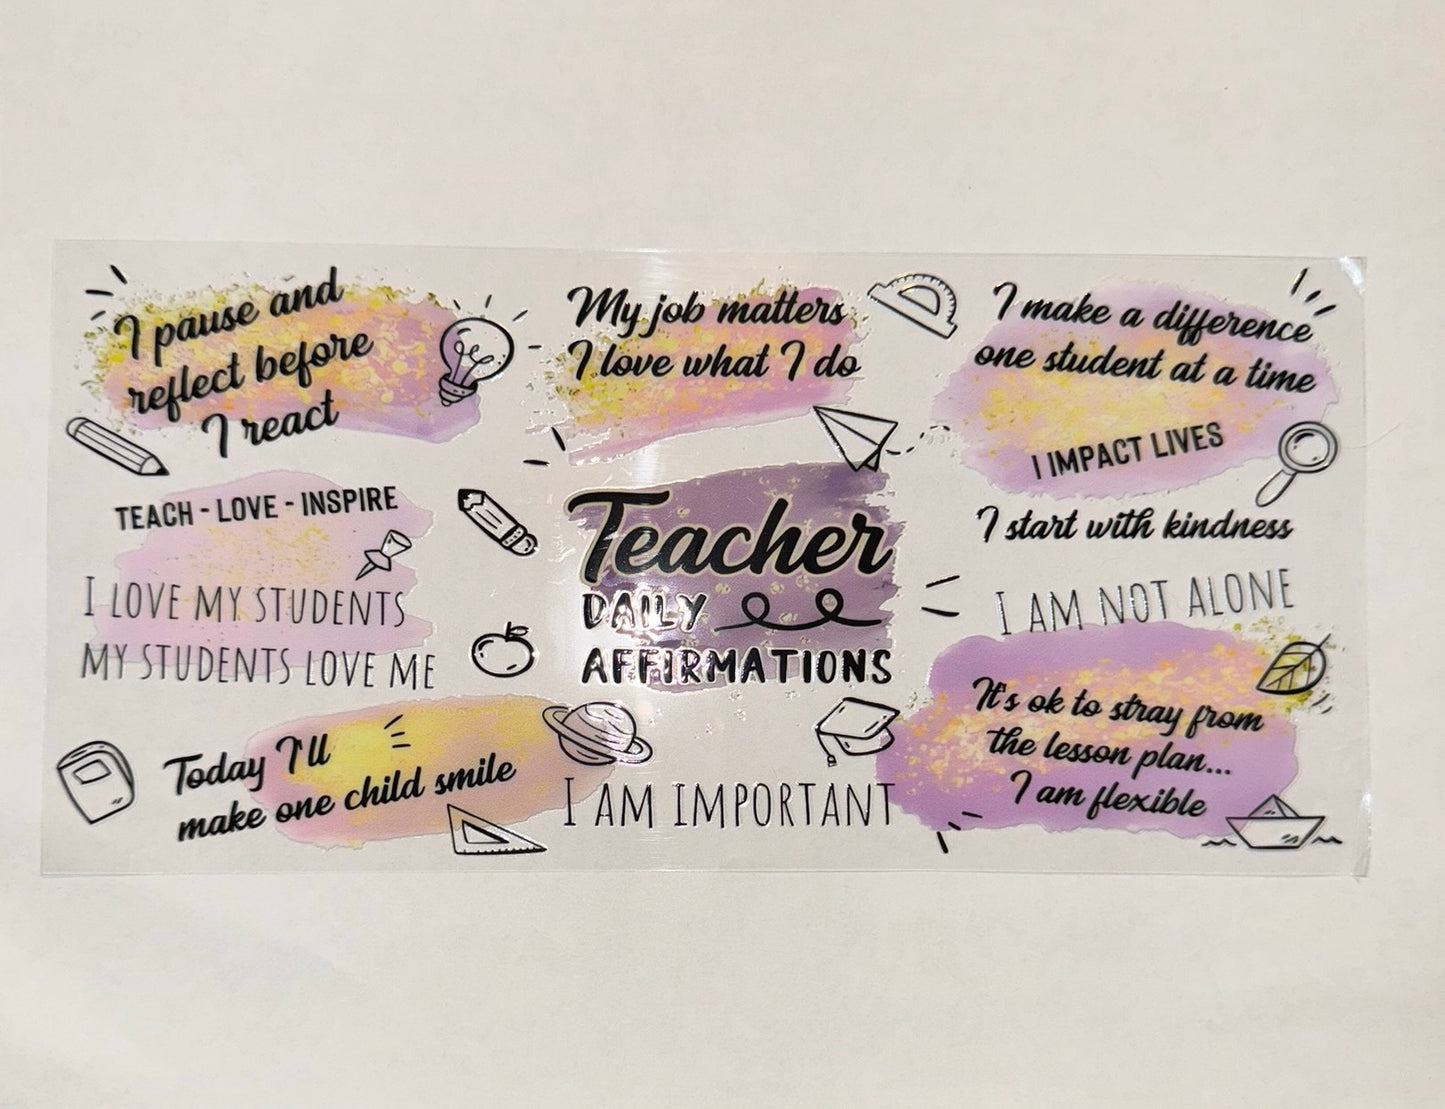 I pause and
reflect before
I react
TEACH - LOVE - INSPIRE
I LOVE MY STUDENTS
MY STUDENTS LOVE ME
Today I'll
make one child smile
My job matters
I love what I do
Teacher
DAILY
AFFIRMATIONS
I AM IMPORTANT
I make a difference
one student at a time
I IMPACT LIVES
I start with kindness
I AM NOT ALONE
It's ok to stray from
the lesson plan...
I am flexible